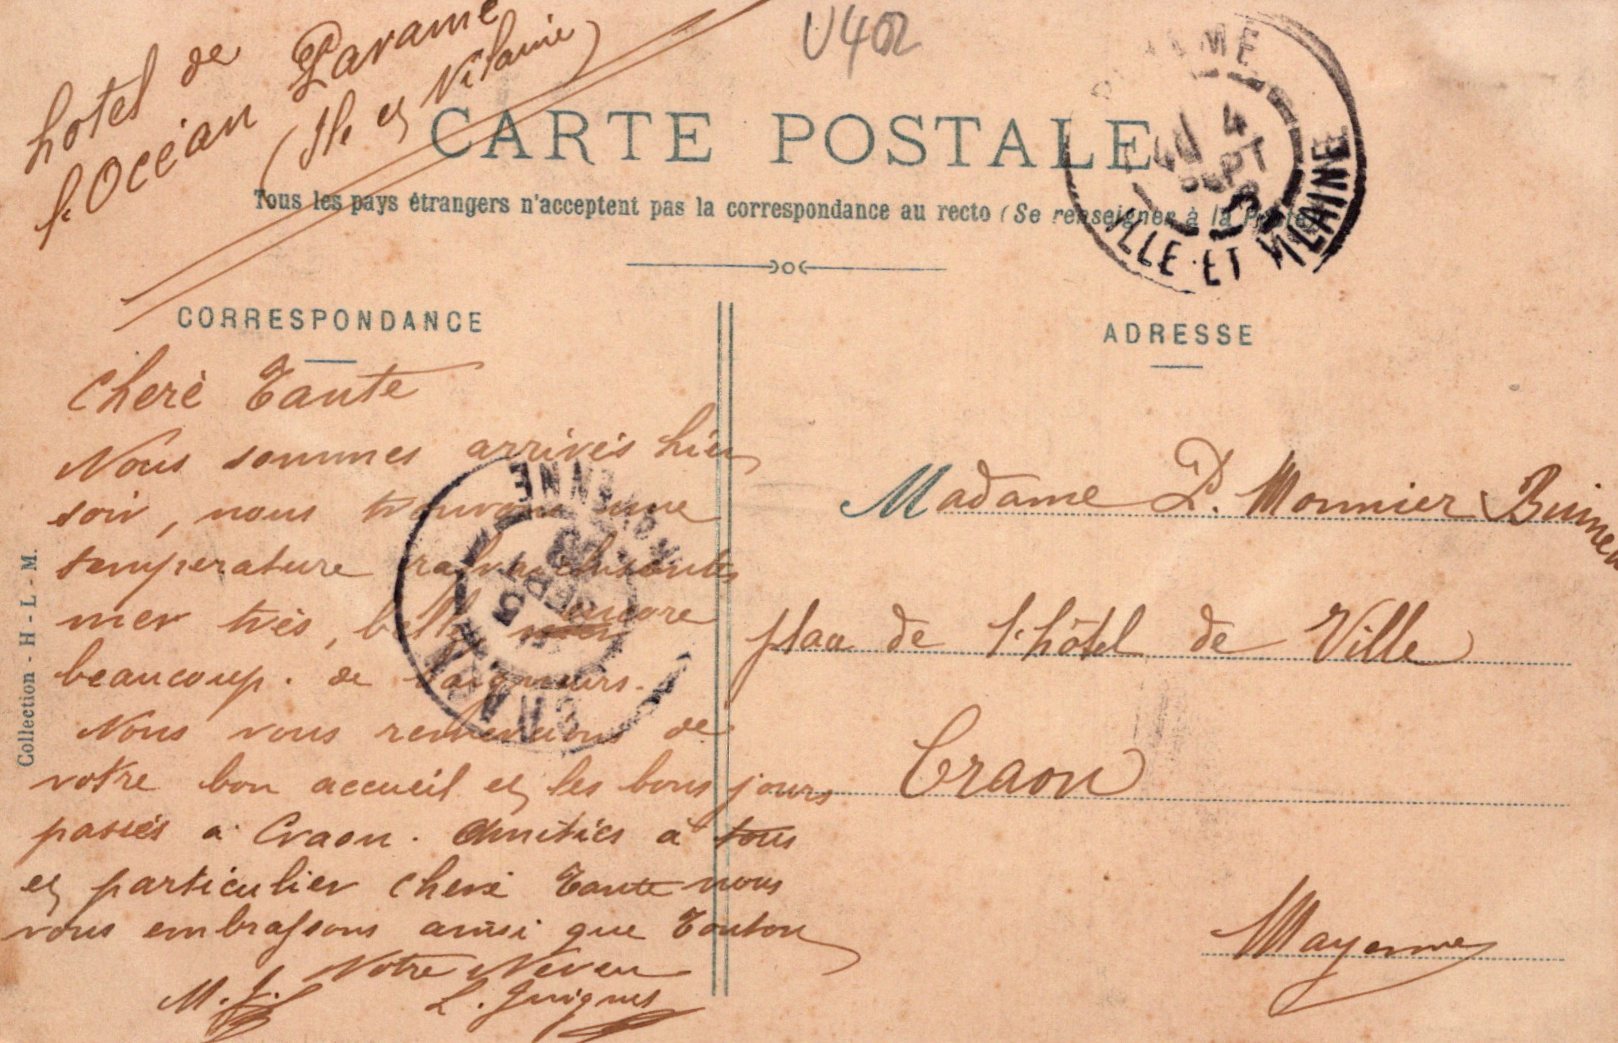 hotel de
l'Océan Paramé
(Ile et Vilaine)
U402
CARTE POSTALE
Tous les pays étrangers n'acceptent pas la correspondance au recto (Se renseigner à la Poste)
4
SEPT
ILLE ET VILAINE
CORRESPONDANCE
ADRESSE
Cherè Tante
Nous sommes arrivés hier
soir, nous trouvons une
temperature rafraichissante
mer très, belle encore
beaucoup. de baigneurs.
Nous vous remercions de
votre bon accueil et les bons jours
passés a Craon. Amitiés à tous
et particulier cheré Tante nous
vous embrassons ainsi que Tonton
Votre Neveu
M. J. L. Guignes
CRAON
MAYENNE
5
SEPT
Madame P. Monnier
place de l'hôtel de Ville
Craon
Mayenne
Collection - H - L - M.